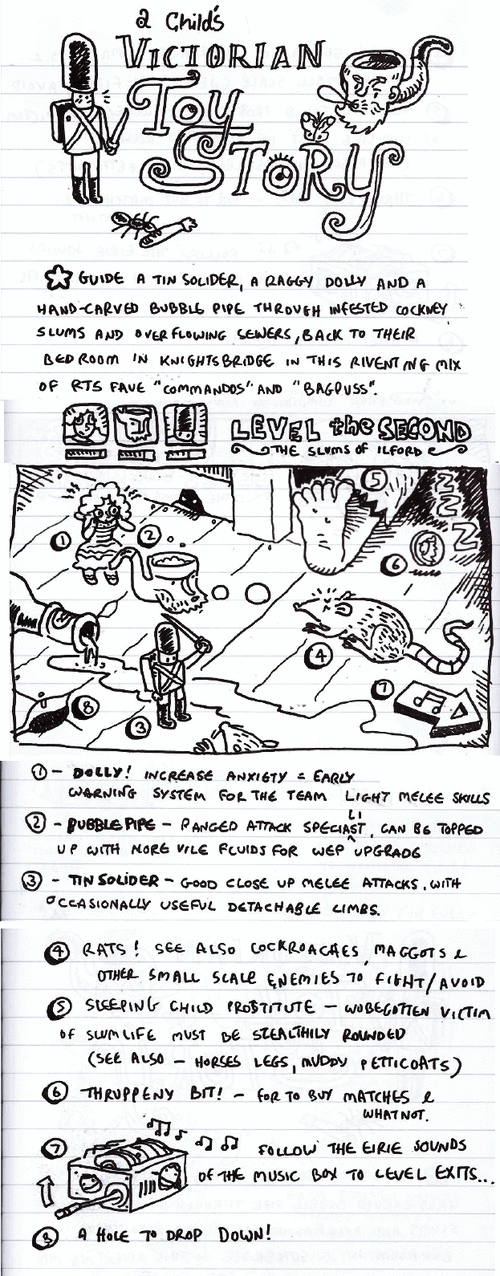 a Child's
VICTORIAN
Toy
STORY
GUIDE A TIN SOLIDER, A RAGGY DOLLY AND A
HAND-CARVED BUBBLE PIPE THROUGH INFESTED COCKNEY
SLUMS AND OVERFLOWING SEWERS, BACK TO THEIR
BEDROOM IN KNIGHTSBRIDGE IN THIS RIVENTING MIX
OF RTS FAVE "COMMANDOS" AND "BAGPUSS".
LEVEL the SECOND
THE SLUMS OF ILFORD
ZZZ
1
2
3
4
5
6
7
8
1 - DOLLY! INCREASE ANXIETY = EARLY
WARNING SYSTEM FOR THE TEAM LIGHT MELEE SKILLS
2 - BUBBLE PIPE - RANGED ATTACK SPECIALIST, CAN BE TOPPED
UP WITH MORE VILE FLUIDS FOR WEP UPGRADE
3 - TIN SOLIDER - GOOD CLOSE UP MELEE ATTACKS, WITH
OCCASIONALLY USEFUL DETACHABLE LIMBS.
4 RATS! SEE ALSO COCKROACHES, MAGGOTS &
OTHER SMALL SCALE ENEMIES TO FIGHT/AVOID
5 SLEEPING CHILD PROSTITUTE - WOBEGOTTEN VICTIM
OF SLUM LIFE MUST BE STEALTHILY ROUNDED
(SEE ALSO - HORSES LEGS, MUDDY PETTICOATS)
6 THRUPPENY BIT! - FOR TO BUY MATCHES &
WHATNOT.
7 FOLLOW THE EIRIE SOUNDS
OF THE MUSIC BOX TO LEVEL EXITS...
8 A HOLE TO DROP DOWN!